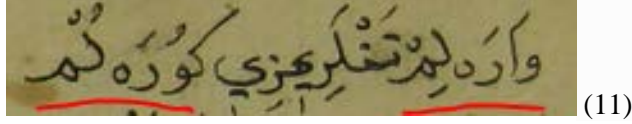 وَارَده لِمْ تَخْلَرِيمِزِي كوُرَده لُم (11)